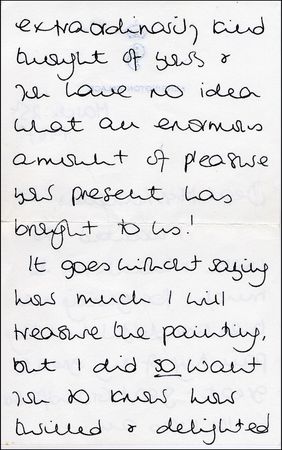 extraordinarily kind
thought of yours &
you have no idea
what an enormous
amount of pleasure
your present has
brought to us!
It goes without saying
how much I will
treasure the painting,
but I did so want
you to know how
thrilled & delighted